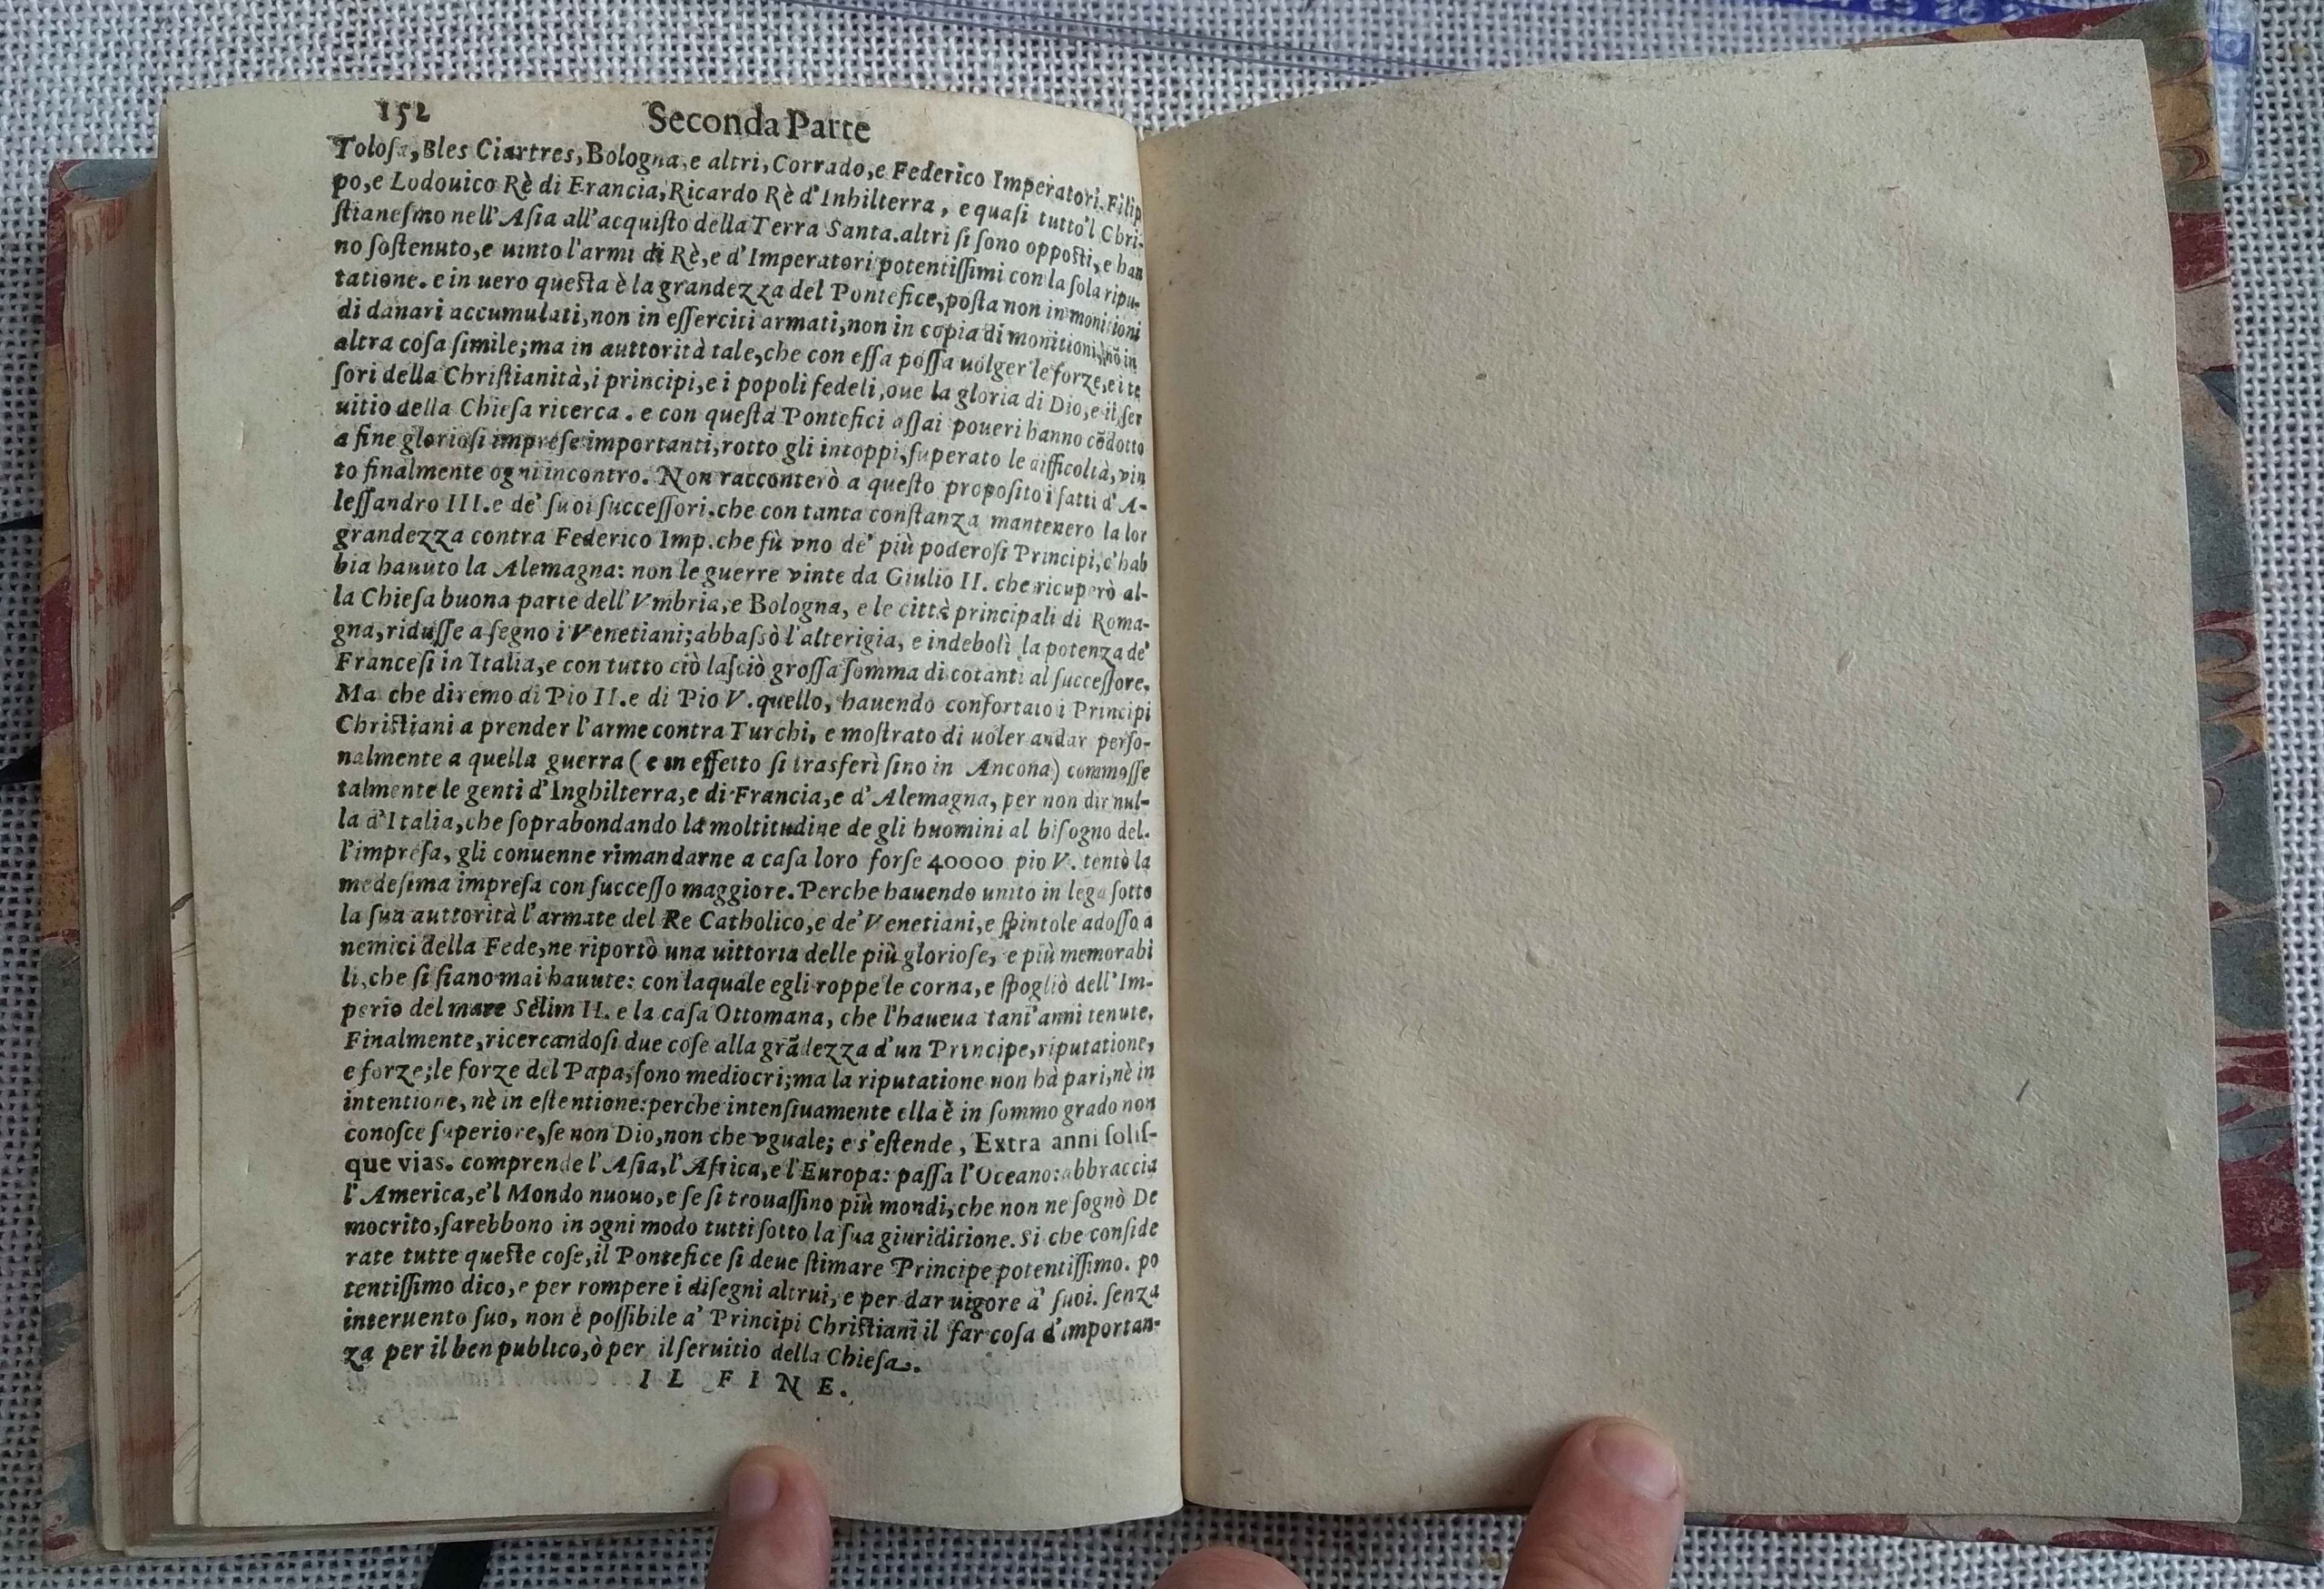 152
Seconda Parte
Tolosa, Bles Ciartres, Bologna, e altri, Corrado, e Federico Imperatori. Filip
po, e Lodouico Rè di Francia, Ricardo Rè d'Inhilterra, e quasi tutto'l Chri-
ſtianeſmo nell'Aſia all'acquiſto della Terra Santa. altri ſi ſono oppoſti, e han
no ſoſtenuto, e uinto l'armi di Rè, e d'Imperatori potentiſſimi con la ſola ripu-
tatione. e in uero queſta è la grandezza del Pontefice, poſta non in monitioni
di danari accumulati, non in eſſerciti armati, non in copia di monitioni, nō in
altra coſa ſimile; ma in auttorità tale, che con eſſa poſſa uolger le forze, e i te
ſori della Chriſtianità, i principi, e i popoli fedeli, oue la gloria di Dio, e il ſer
uitio della Chieſa ricerca. e con queſta Pontefici aſſai poueri hanno cōdotto
a fine glorioſi impreſe importanti, rotto gli intoppi, ſuperato le difficoltà, vin
to finalmente ogni incontro. Non racconterò a queſto propoſito i fatti d'A-
leſſandro III. e de' ſuoi ſucceſſori. che con tanta conſtanza mantenero la lor
grandezza contra Federico Imp. che fù vno de' più poderoſi Principi, c'hab
bia hauuto la Alemagna: non le guerre vinte da Giulio II. che ricuperò al-
la Chieſa buona parte dell'Vmbria, e Bologna, e le città principali di Roma-
gna, riduſſe a ſegno i Venetiani; abbaſsò l'alterigia, e indebolì la potenza de'
Franceſi in Italia, e con tutto ciò laſciò groſſa ſomma di cotanti al ſucceſſore.
Ma che diremo di Pio II. e di Pio V. quello, hauendo confortato i Principi
Chriſtiani a prender l'arme contra Turchi, e moſtrato di uoler andar perſo-
nalmente a quella guerra (e in effetto ſi trasferì ſino in Ancona) commoſſe
talmente le genti d'Inghilterra, e di Francia, e d'Alemagna, per non dir nul-
la d'Italia, che ſoprabondando la moltitudine de gli huomini al biſogno del.
l'impreſa, gli conuenne rimandarne a caſa loro forſe 40000 pio V. tentò la
medeſima impreſa con ſucceſſo maggiore. Perche hauendo unito in lega ſotto
la ſua auttorità l'armate del Re Catholico, e de' Venetiani, e ſpintole adoſſo a
nemici della Fede, ne riportò una uittoria delle più glorioſe, e più memorabi
li, che ſi ſiano mai hauute: con laquale egli roppe le corna, e ſpogliò dell'Im-
perio del mare Selim II. e la caſa Ottomana, che l'haueua tant'anni tenute.
Finalmente, ricercandoſi due coſe alla grādezza d'un Principe, riputatione,
e forze; le forze del Papa, ſono mediocri; ma la riputatione non hà pari, nè in
intentione, nè in eſtentione: perche intenſiuamente ella è in ſommo grado non
conoſce ſuperiore, ſe non Dio, non che vguale; e s'eſtende, Extra anni ſoliſ-
que vias. comprende l'Aſia, l'Africa, e l'Europa: paſſa l'Oceano: abbraccia
l'America, e'l Mondo nuouo, e ſe ſi trouaſſino più mondi, che non ne ſognò De
mocrito, ſarebbono in ogni modo tutti ſotto la ſua giuriditione. Si che conſide
rate tutte queſte coſe, il Pontefice ſi deue ſtimare Principe potentiſſimo. po
tentiſſimo dico, e per rompere i diſegni altrui, e per dar uigore a' ſuoi. ſenza
interuento ſuo, non è poſſibile a' Principi Chriſtiani il far coſa d'importan-
za per il ben publico, ò per il ſeruitio della Chieſa.
IL FINE.